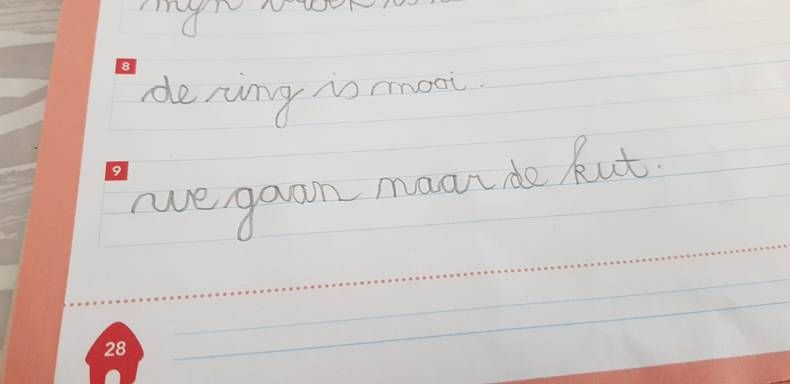 mijn
8
de ring is mooi.
9
we gaan naar de kut.
28